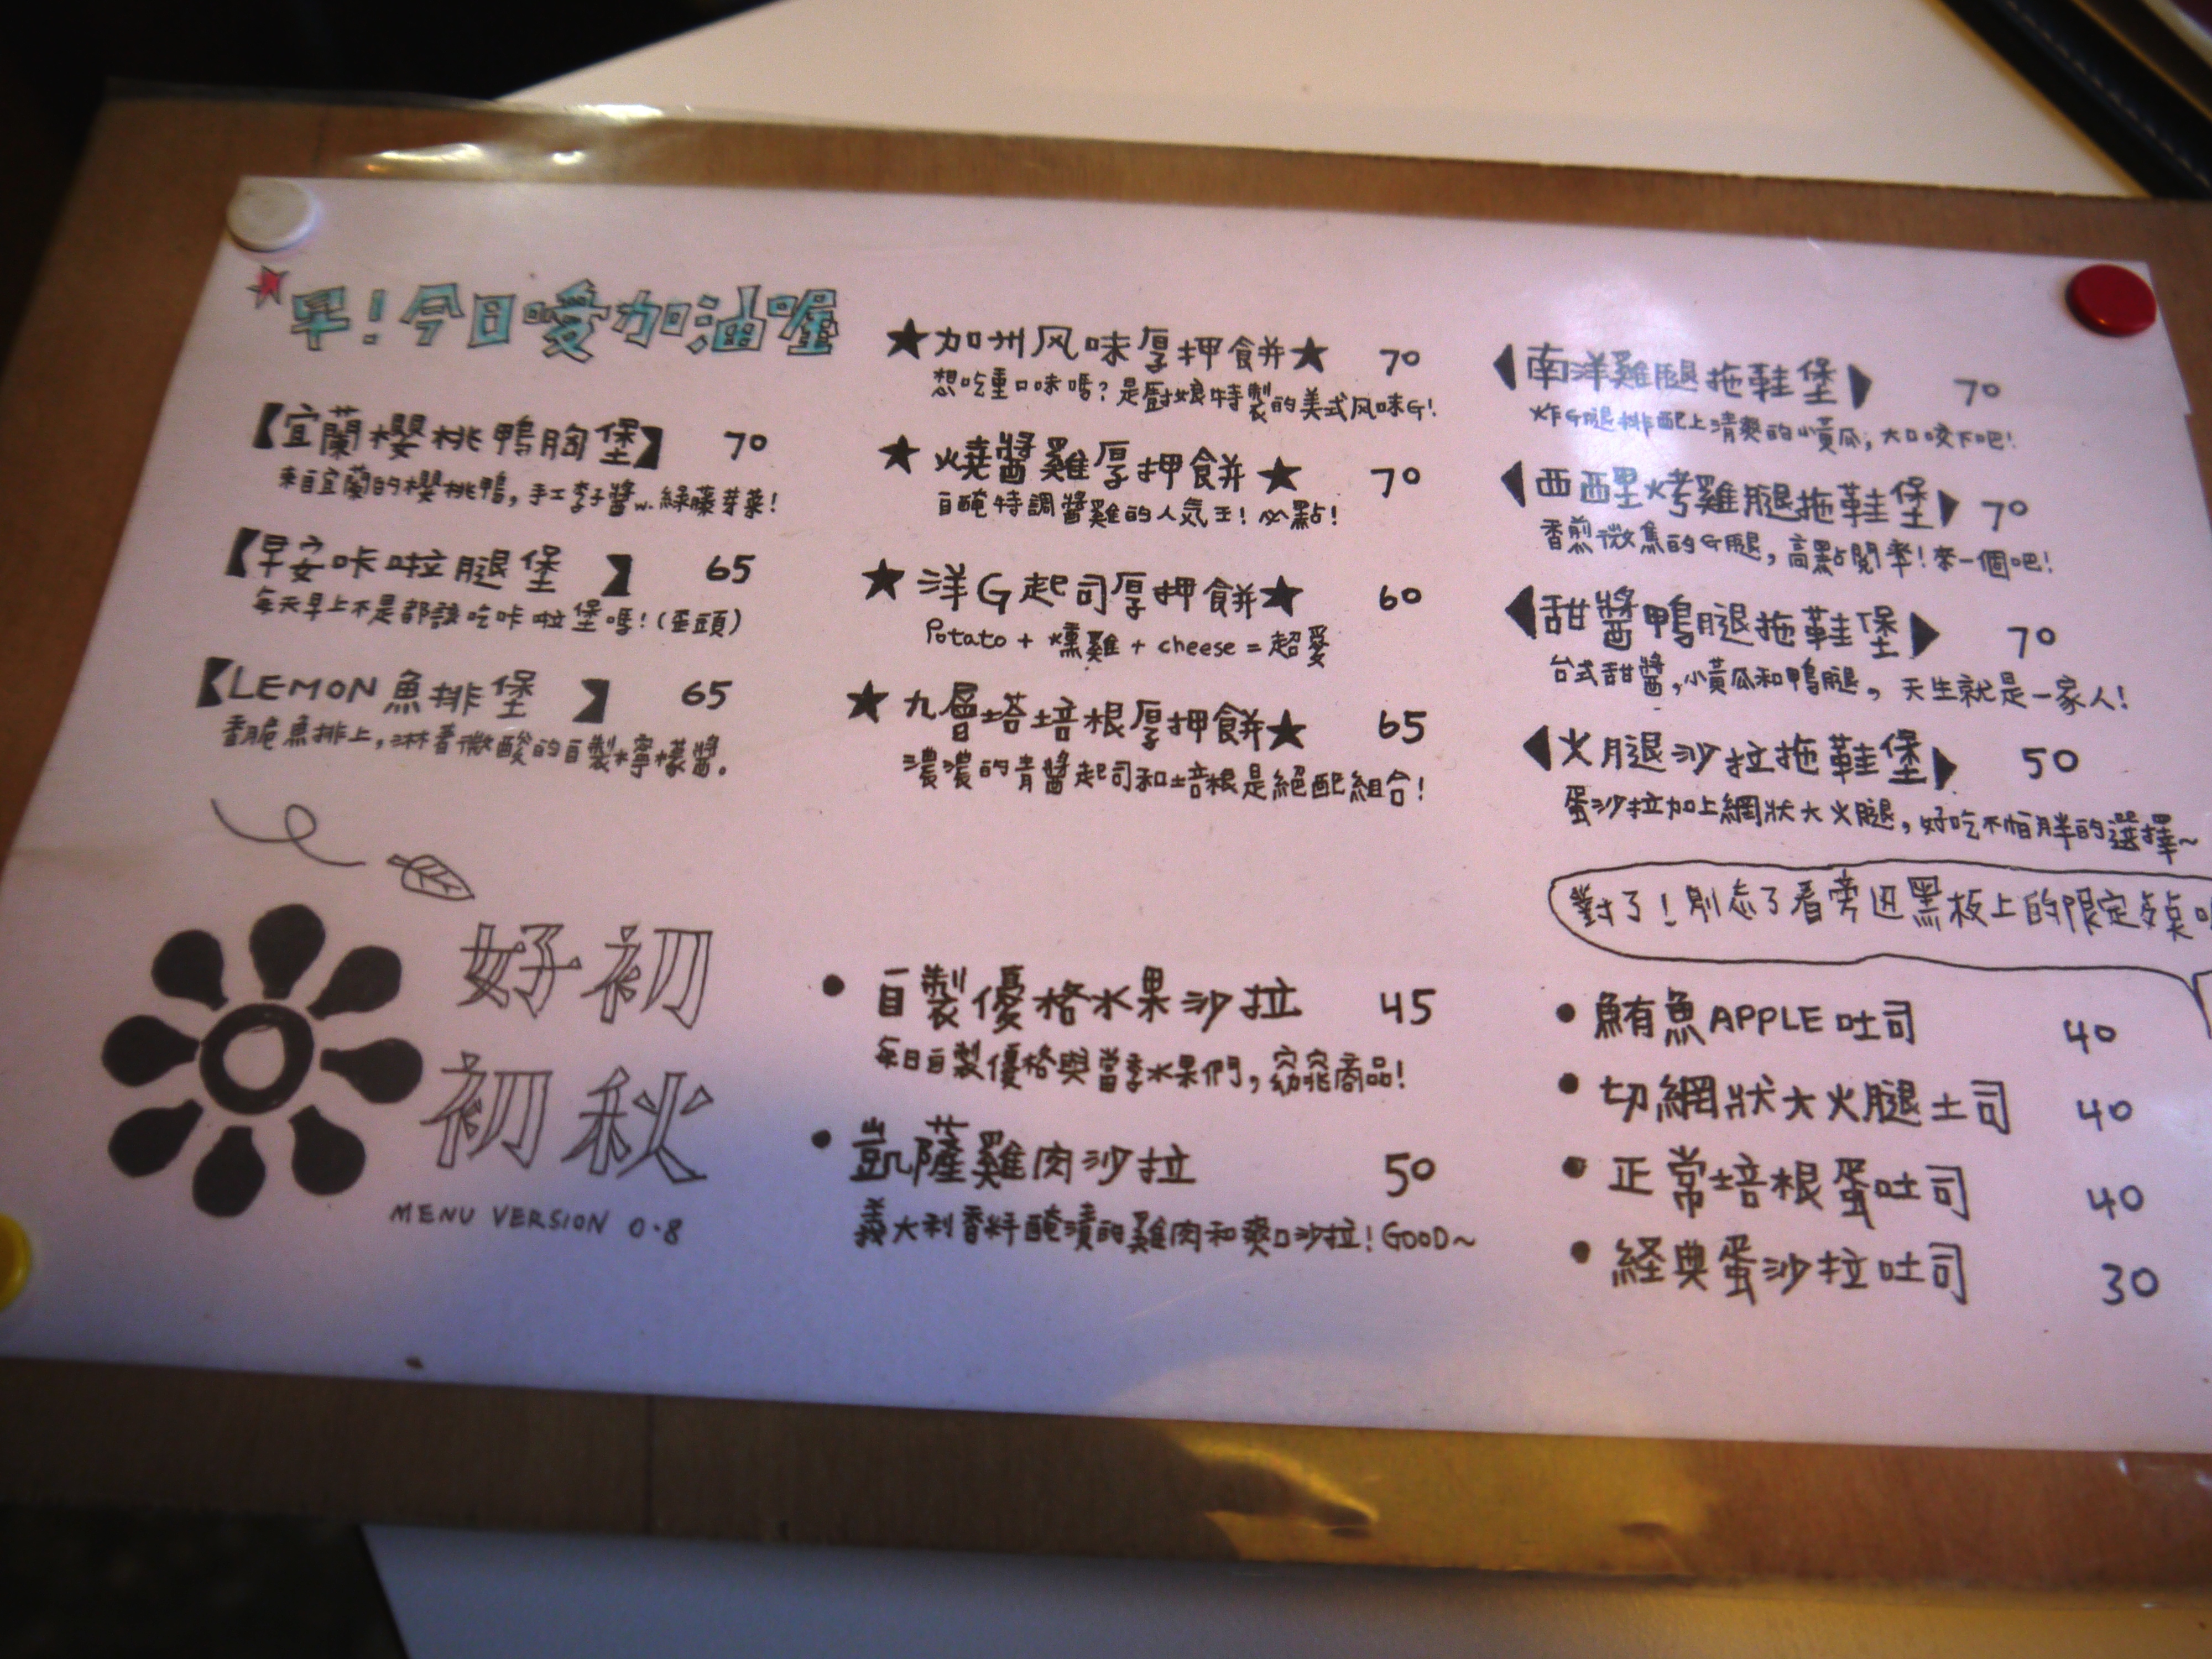 早!今日噯加油喔
【宜蘭櫻桃鴨胸堡】 70
來自宜蘭的櫻桃鴨,手工李子醬w.綠藤芽菜!
【早安咔啦腿堡】 65
每天早上不是都該吃咔啦堡嗎!(歪頭)
【LEMON魚排堡】 65
香脆魚排上,淋著微酸的自製檸檬醬。
好初
初秋
MENU VERSION 0.8
★加州风味厚押餅★ 70
想吃重口味嗎?是廚娘特製的美式风味G!
★燒醬雞厚押餅★ 70
自醃特調醬雞的人気王!必點!
★洋G起司厚押餅★ 60
Potato + 燻雞 + cheese = 超愛
★九層塔培根厚押餅★ 65
濃濃的青醬起司和培根是絕配組合!
•自製優格水果沙拉 45
每日自製優格與當季水果們,窈窕商品!
•凱薩雞肉沙拉 50
義大利香料醃漬的雞肉和爽口沙拉!GOOD~
◀南洋雞腿拖鞋堡▶ 70
炸G腿排配上清爽的小黃瓜,大口咬下吧!
◀西西里烤雞腿拖鞋堡▶ 70
香煎微焦的G腿,高點閱率!來一個吧!
◀甜醬鴨腿拖鞋堡▶ 70
台式甜醬,小黃瓜和鴨腿,天生就是一家人!
◀火腿沙拉拖鞋堡▶ 50
蛋沙拉加上網狀大火腿,好吃不怕胖的選擇~
對了!別忘了看旁边黑板上的限定餐
•鮪魚APPLE吐司 40
•切網狀大火腿土司 40
•正常培根蛋吐司 40
•経典蛋沙拉吐司 30